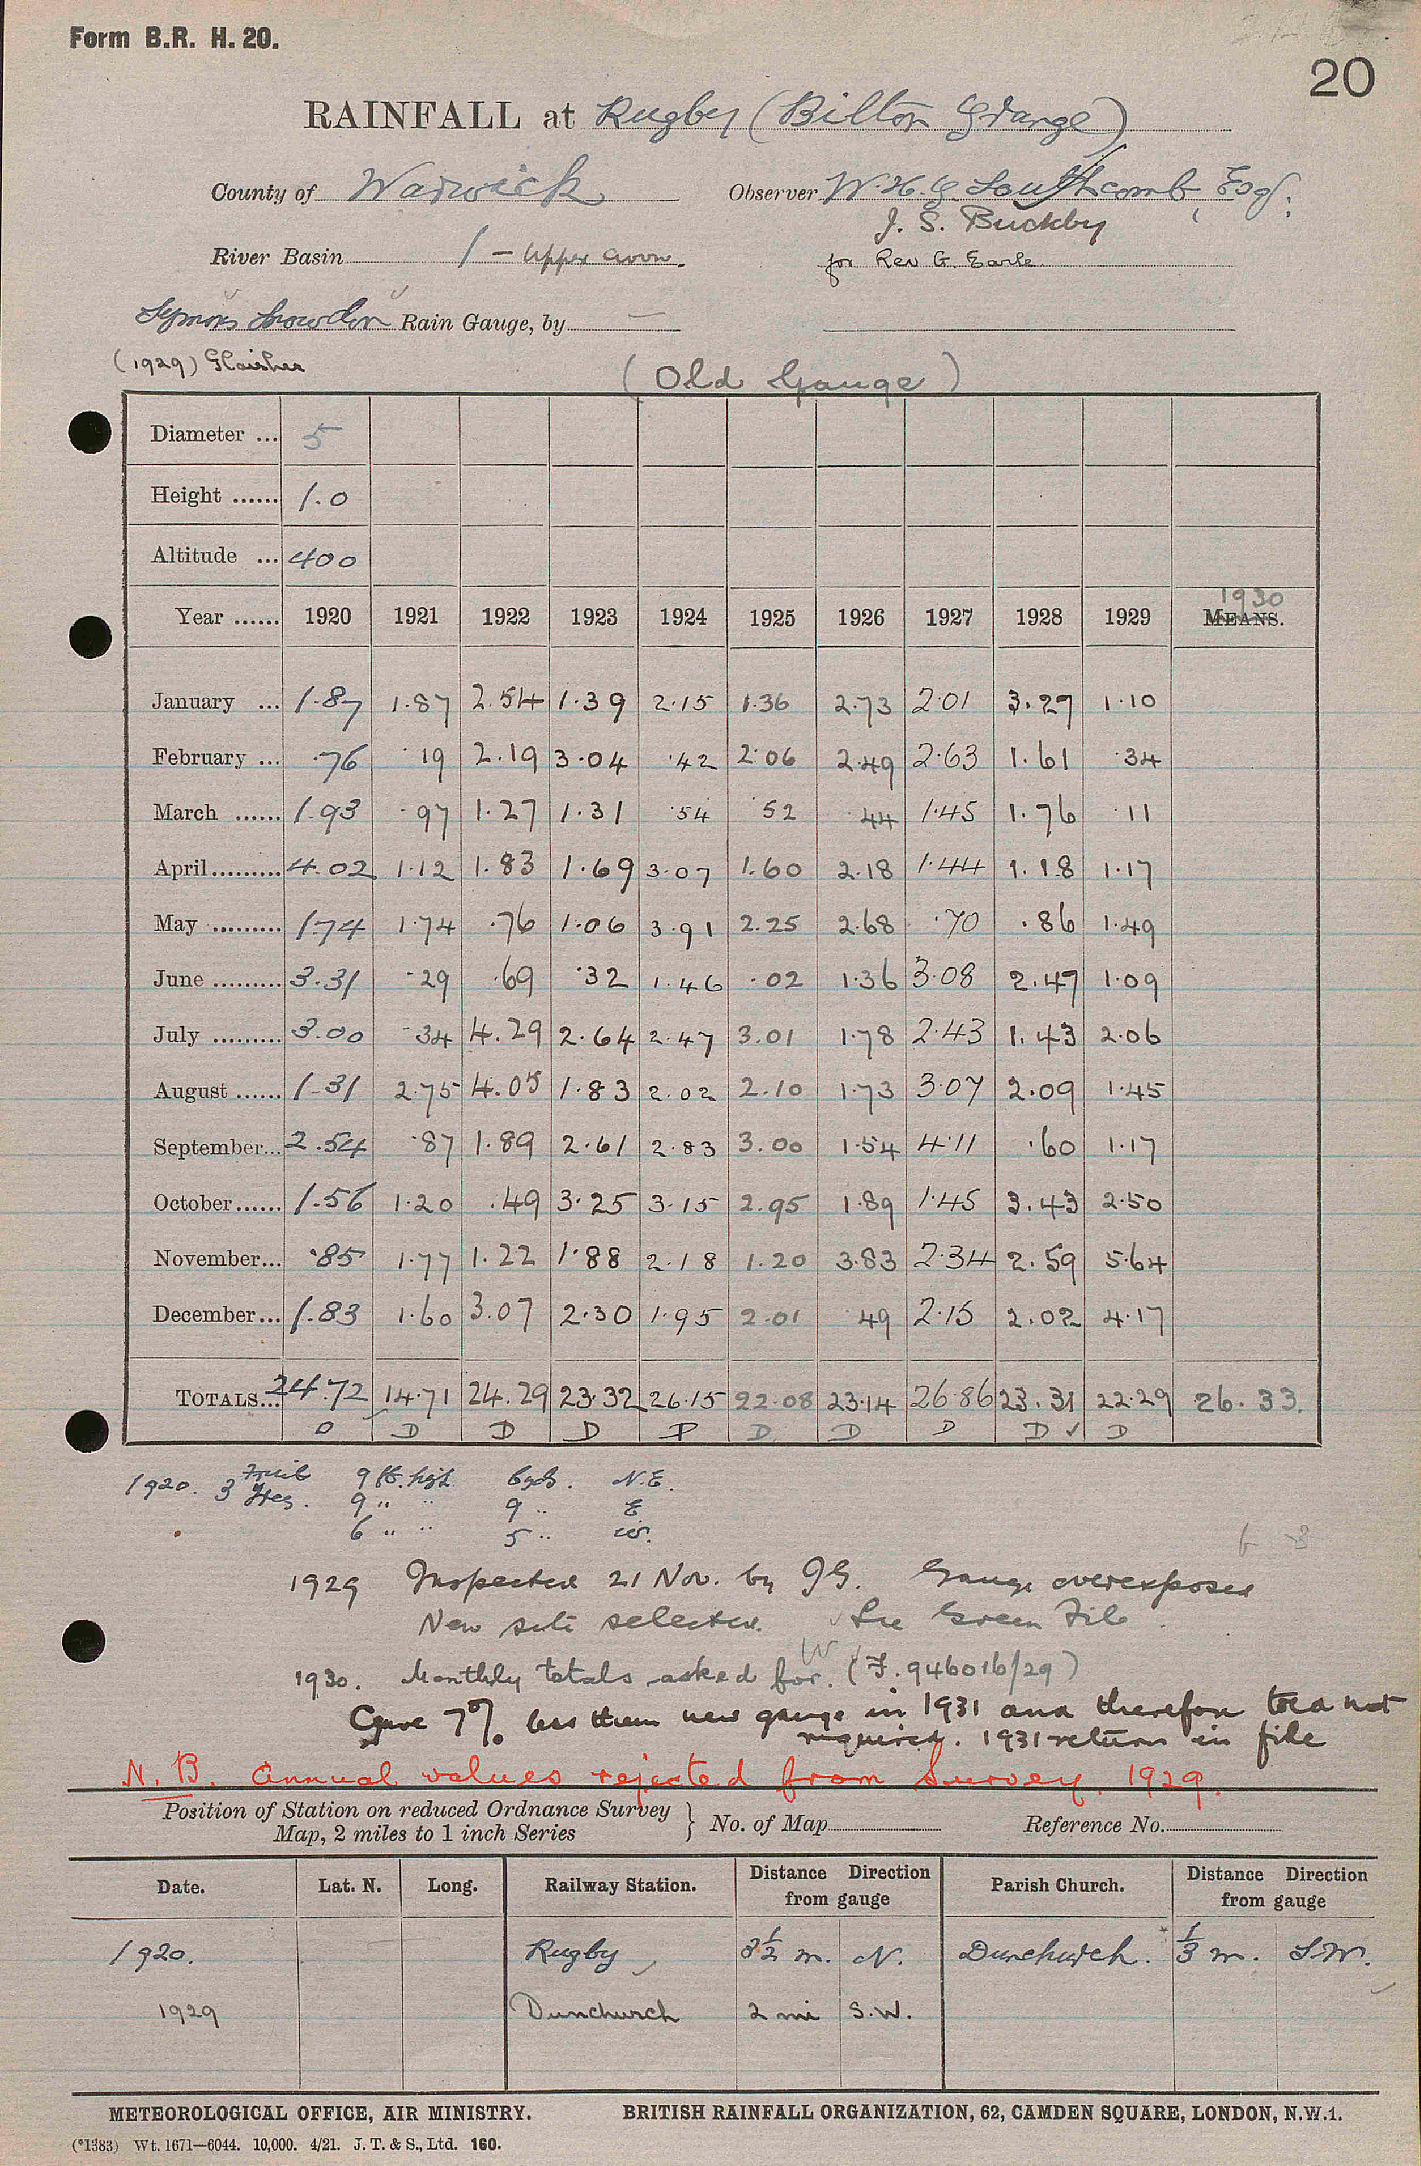 Form B.R. H. 20.
20
RAINFALL at Rugby (Bilton Grange)
County of Warwick Observer W. H. G. Southcomb, Esq.
J. S. Buckby
River Basin 1 - Upper Avon. for Rev G. Earle
Symons Snowdon Rain Gauge, by —
(1929) Glaisher (Old Gauge)
Diameter ... 5
Height ...... 1.0
Altitude ... 400
1930
Year ...... 1920 1921 1922 1923 1924 1925 1926 1927 1928 1929 MEANS.
January ... 1.87 1.87 2.54 1.39 2.15 1.36 2.73 2.01 3.27 1.10
February ... .76 .19 2.19 3.04 .42 2.06 2.49 2.63 1.61 .34
March ...... 1.93 .97 1.27 1.31 .54 .52 .44 1.45 1.76 .11
April ......... 4.02 1.12 1.83 1.69 3.07 1.60 2.18 1.44 1.18 1.17
May ......... 1.74 1.74 .76 1.06 3.91 2.25 2.68 .70 .86 1.49
June ......... 3.31 .29 .69 .32 1.46 .02 1.36 3.08 2.47 1.09
July ......... 3.00 .34 4.29 2.64 2.47 3.01 1.78 2.43 1.43 2.06
August ...... 1.31 2.75 4.05 1.83 2.02 2.10 1.73 3.07 2.09 1.45
September... 2.54 .87 1.89 2.61 2.83 3.00 1.54 4.11 .60 1.17
October...... 1.56 1.20 .49 3.25 3.15 2.95 1.89 1.45 3.43 2.50
November... .85 1.77 1.22 1.88 2.18 1.20 3.83 2.34 2.59 5.64
December... 1.83 1.60 3.07 2.30 1.95 2.01 .49 2.15 2.02 4.17
TOTALS... 24.72 14.71 24.29 23.32 26.15 22.08 23.14 26.86 23.31 22.29 26.33.
D D D D P D D D D ✓ D
1920. 3 Fruit Trees. 9 ft. high 6 yds. N.E.
9 " " 9 " E
6 " " 5 " W.
1929 Inspected 21 Nov. by JG. Gauge overexposed
New site selected. See Green File.
1930. Monthly totals asked for. (F. 946016/29)
Gave 7% less than new gauge in 1931 and therefore told not
required. 1931 return in file
N.B. Annual values rejected from Survey. 1929.
Position of Station on reduced Ordnance Survey
Map, 2 miles to 1 inch Series } No. of Map Reference No.
Date. Lat. N. Long. Railway Station. Distance Direction from gauge Parish Church. Distance Direction from gauge
1920. Rugby 3½ m. N. Dunchurch. ⅓ m. S.W.
1929 Dunchurch 2 mi S.W.
METEOROLOGICAL OFFICE, AIR MINISTRY. BRITISH RAINFALL ORGANIZATION, 62, CAMDEN SQUARE, LONDON, N.W.1.
(*1383) Wt. 1671—6044. 10,000. 4/21. J. T. & S., Ltd. 160.